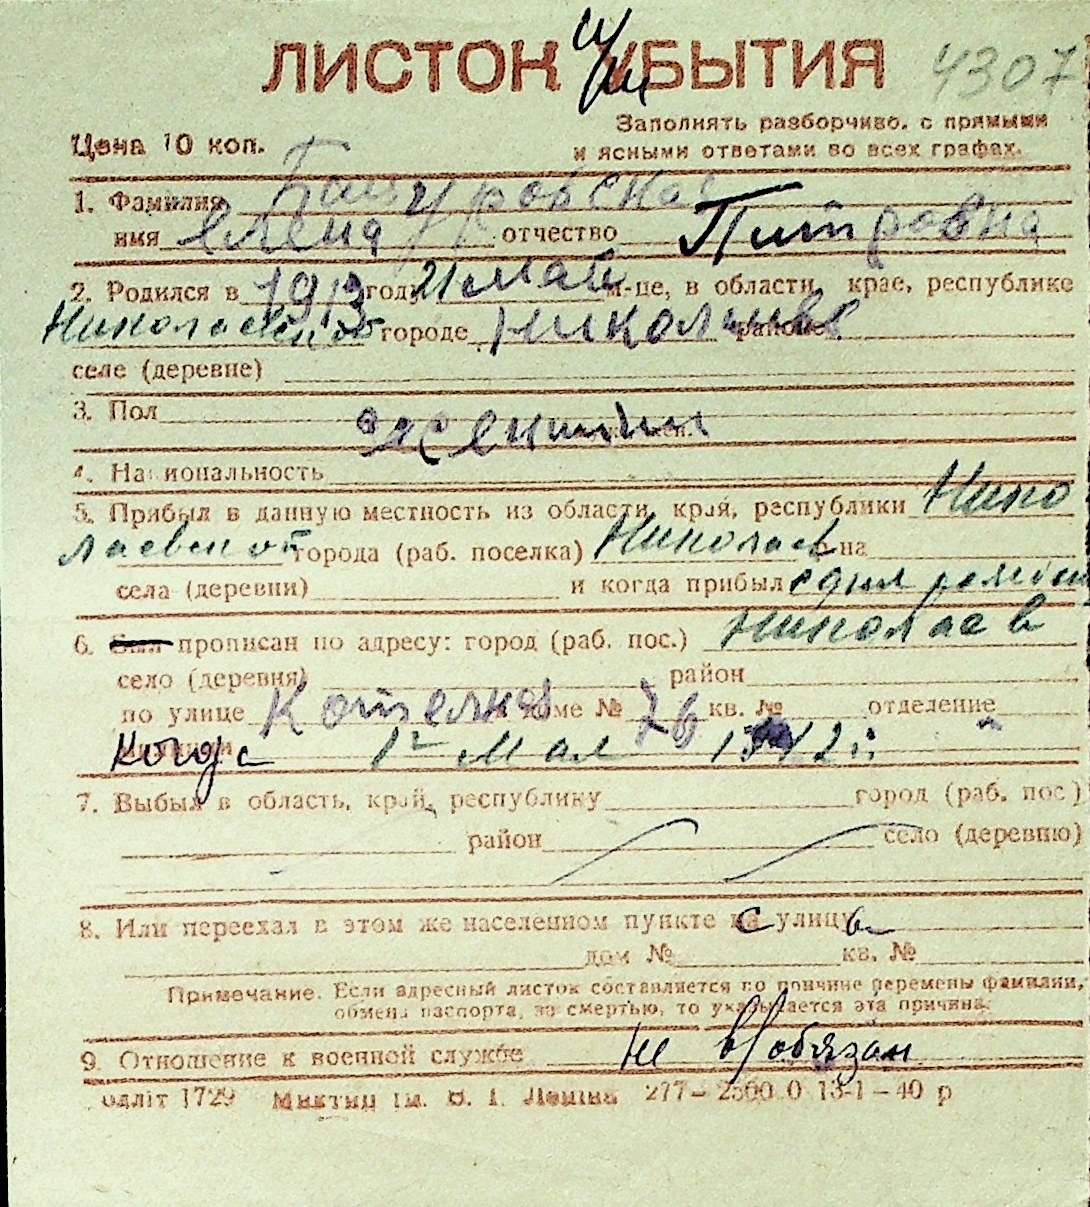 ЛИСТОК УБЫТИЯ
4307
Заполнять разборчиво, с прямыми
Цена 10 коп.
и ясными ответами во всех графах.
1. Фамилия
имя Елена отчество Питровна
2. Родился в 1913 году 21 май м-це, в области, крае, республике
Николаевской городе Николаеве районе
селе (деревне)
3. Пол женщин
4. Национальность
5. Прибыл в данную местность из области, края, республики Нико
лаевской города (раб. поселка) Николаев р-на
села (деревни) и когда прибыл
6. Был прописан по адресу: город (раб. пос.) Николаев
село (деревня) район
по улице доме № 76 кв. № отделение
когда 1го Мая 1942 г.
7. Выбыл в область, край, республику город (раб. пос.)
район село (деревню)
8. Или переехал в этом же населенном пункте улицу
дом № кв. №
Примечание. Если адресный листок составляется по причине перемены фамилии,
обмена паспорта, за смертью, то указывается эта причина.
9. Отношение к военной службе не в/обязан
одліт 1729 ім. В. І. Леніна 277 – 2500 0 13-1 – 40 р